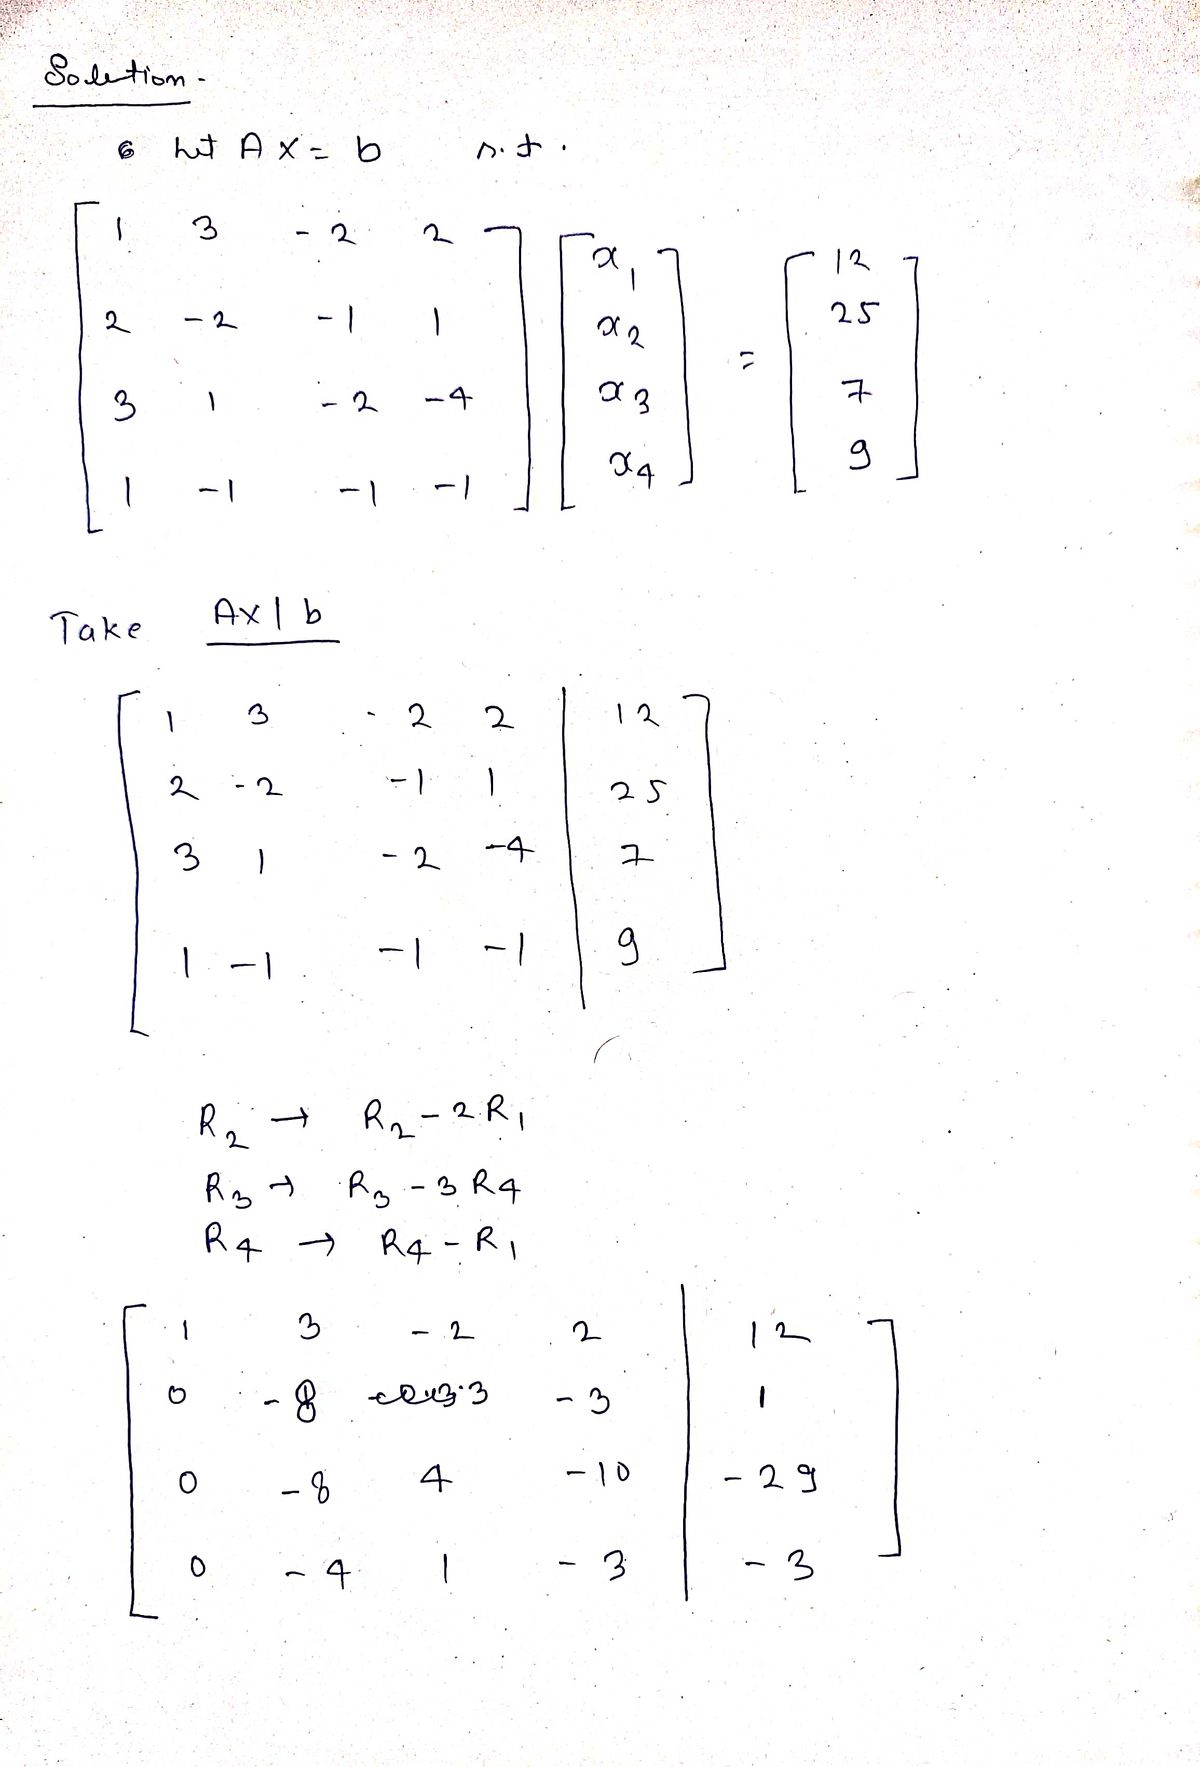 Solution -
Let AX = b s.t.
1 3 -2 2 x1 12
2 -2 -1 1 x2 = 25
3 1 -2 -4 x3 7
1 -1 -1 -1 x4 9
Take AX | b
1 3 -2 2 | 12
2 -2 -1 1 | 25
3 1 -2 -4 | 7
1 -1 -1 -1 | 9
R2 → R2 - 2R1
R3 → R3 - 3R4
R4 → R4 - R1
1 3 -2 2 | 12
0 -8 3 -3 | 1
0 -8 4 -10 | -29
0 -4 1 -3 | -3